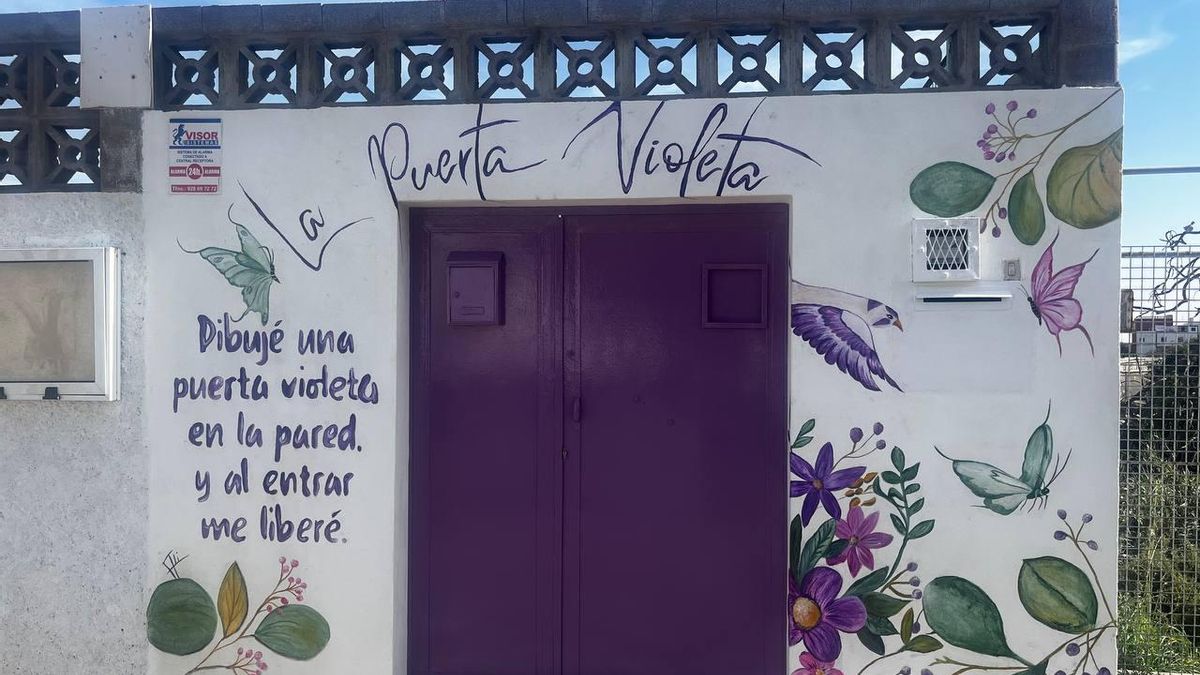 La Puerta Violeta
VISOR
SISTEMAS
SISTEMA DE ALARMA
CONECTADO A
CENTRAL RECEPTORA
ALARMA 24h. ALARMA
Dibujé una
puerta violeta
en la pared.
y al entrar
me liberé.